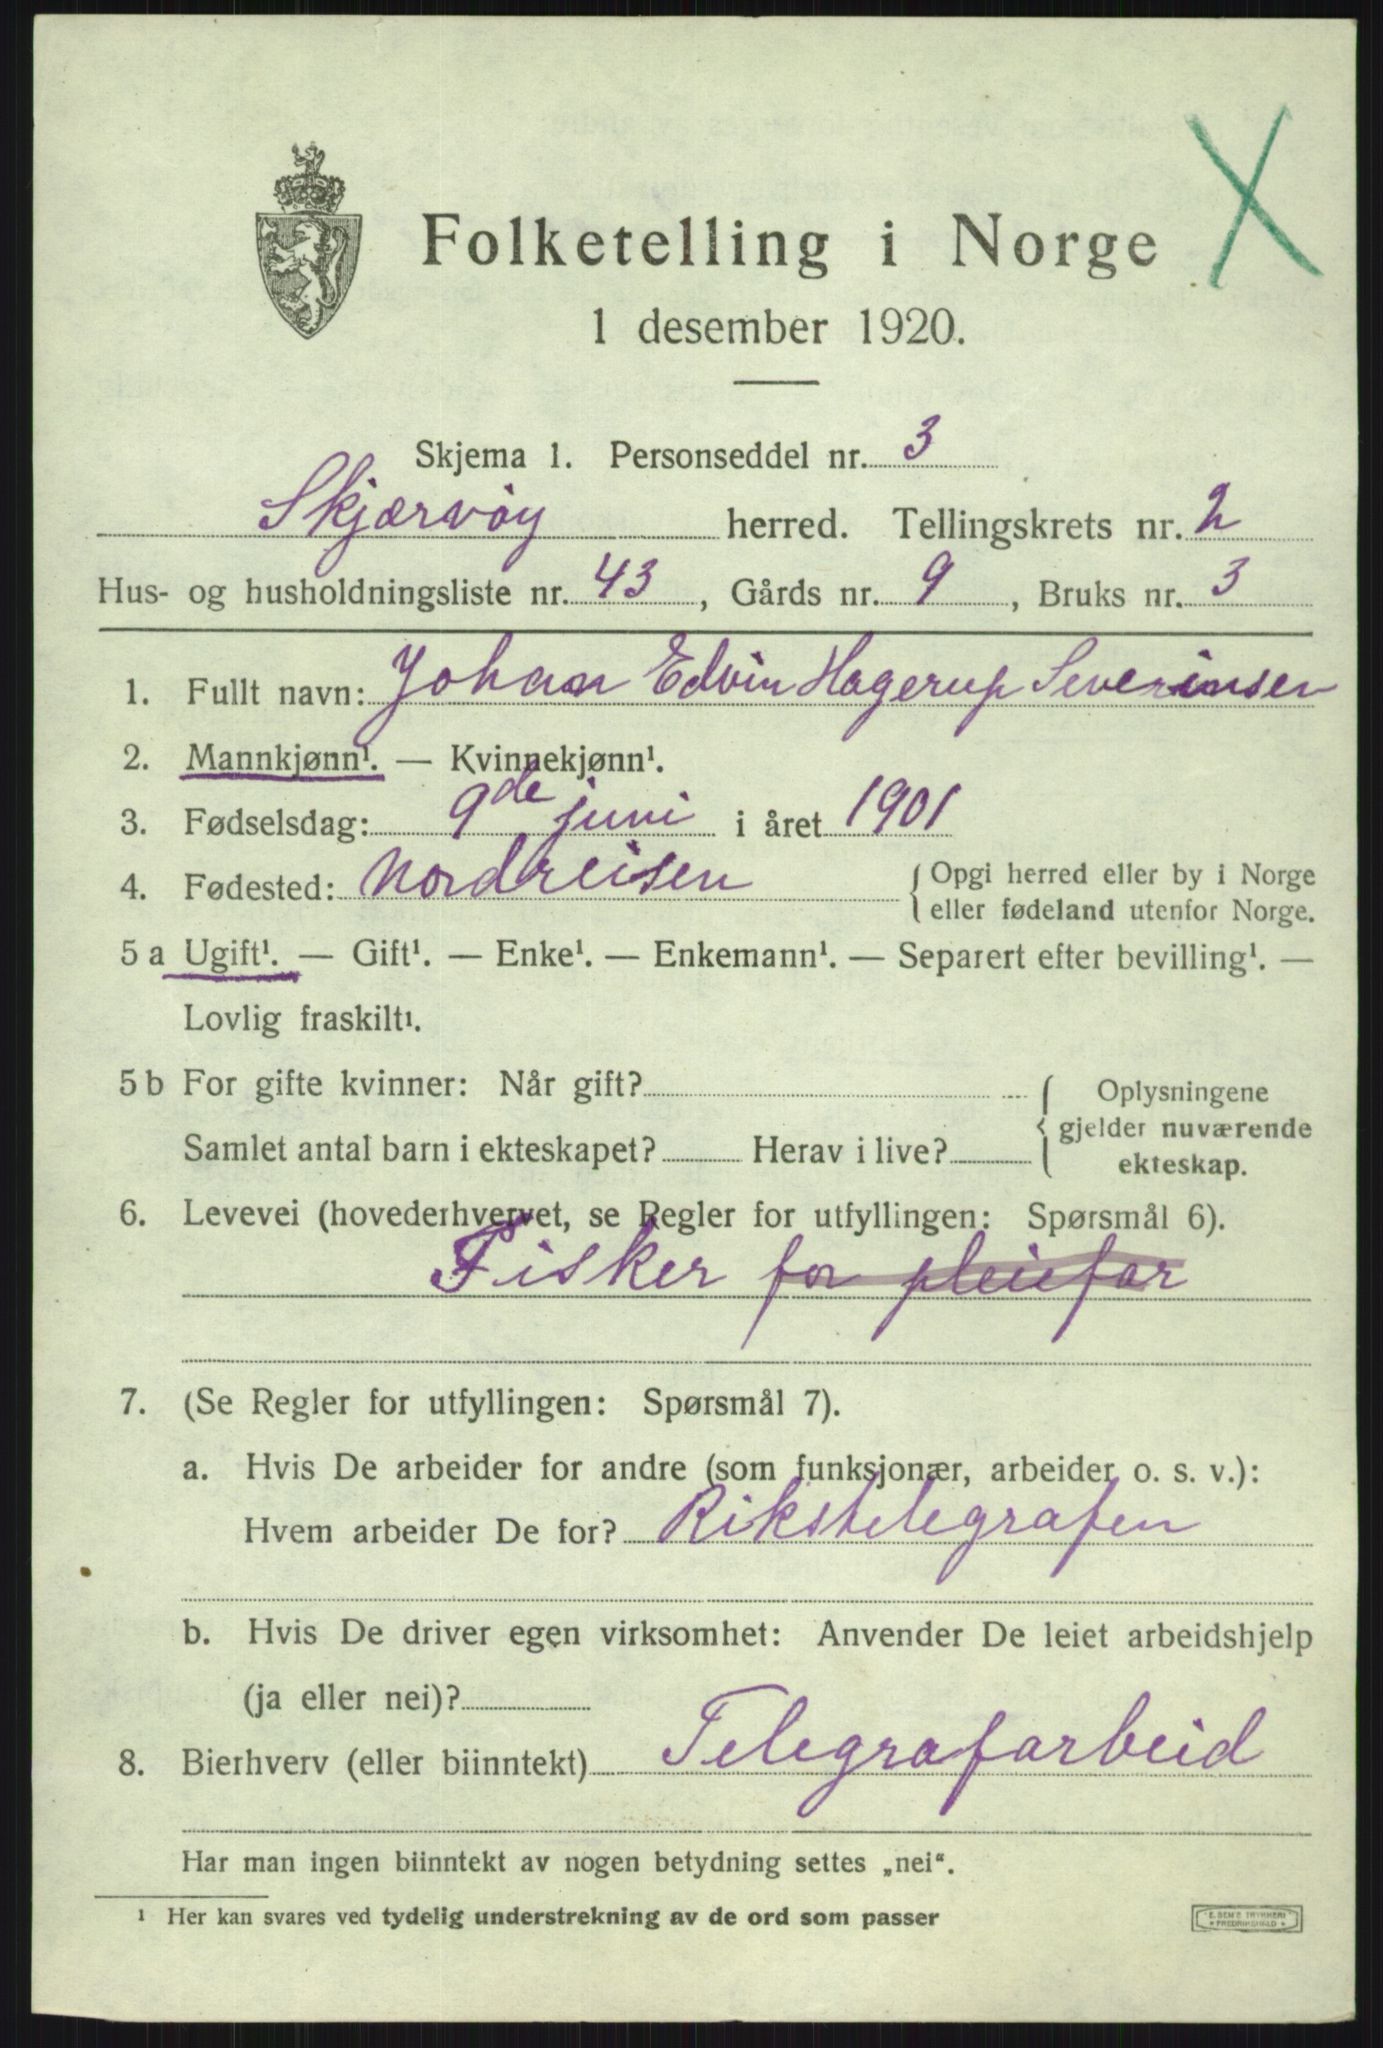 Folketelling i Norge
1 desember 1920.
Skjema 1. Personseddel nr. 3
Skjærvöy herred. Tellingskrets nr. 2
Hus- og husholdningsliste nr. 43, Gårds nr. 9, Bruks nr. 3
1. Fullt navn: Johan Edvin Hagerup Severinsen
2. Mannkjønn¹. — Kvinnekjønn¹.
3. Fødselsdag: 9de juni i året 1901
4. Fødested: Nordreisen { Opgi herred eller by i Norge
eller fødeland utenfor Norge.
5 a Ugift¹. — Gift¹. — Enke¹. — Enkemann¹. — Separert efter bevilling¹. —
Lovlig fraskilt¹.
5 b For gifte kvinner: Når gift? { Oplysningene
gjelder nuværende
Samlet antal barn i ekteskapet? Herav i live? ekteskap.
6. Levevei (hovederhvervet, se Regler for utfyllingen: Spørsmål 6).
Fisker for pleiefar
7. (Se Regler for utfyllingen: Spørsmål 7).
a. Hvis De arbeider for andre (som funksjonær, arbeider o. s. v.):
Hvem arbeider De for? Rikstelegrafen
b. Hvis De driver egen virksomhet: Anvender De leiet arbeidshjelp
(ja eller nei)?
8. Bierhverv (eller biinntekt) Telegrafarbeid
Har man ingen biinntekt av nogen betydning settes „nei“.
¹ Her kan svares ved tydelig understrekning av de ord som passer
E. SEM'S TRYKKERI
FREDRIKSHALD